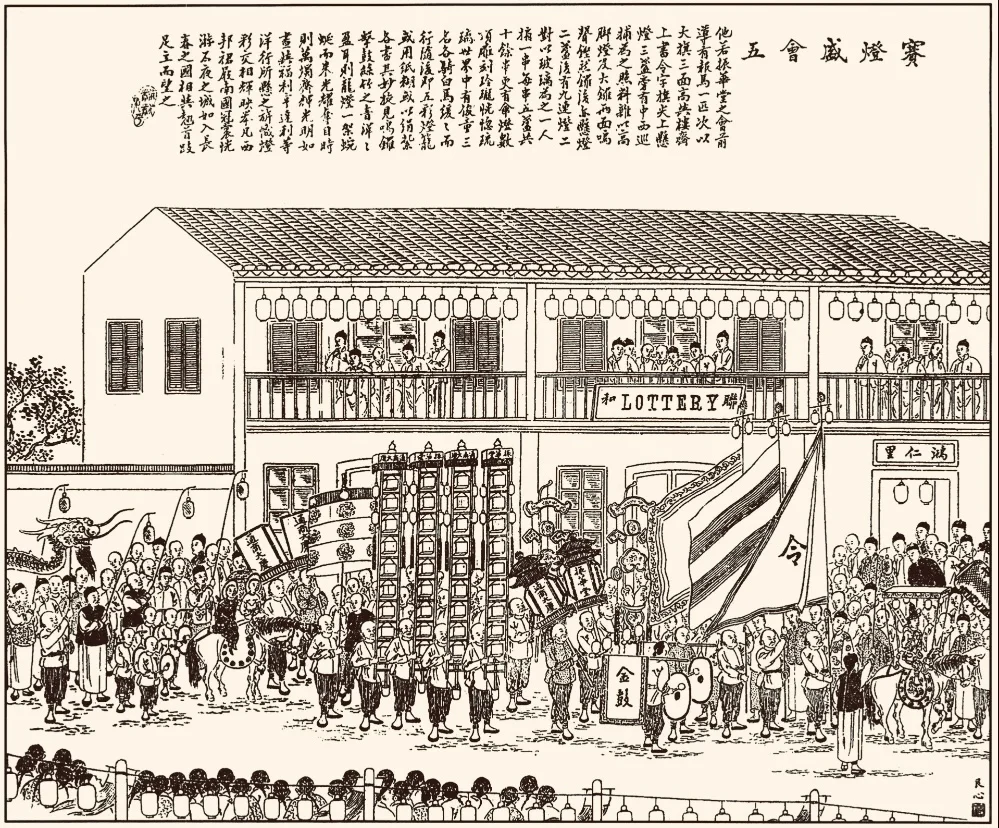 賽燈盛會五
他若振華堂之會前
導有報馬一匹次以
大旗三面高與樓齊
上書令字旗尖上懸
燈三盞旁有中西巡
捕為之照料雖以高
脚燈及大鑼兩面鳴
聲鏜然鑼後亦懸燈
二盞後有九連燈二
對以玻璃為之一人
掮一串每串五盞共
十餘串更有傘燈數
頂雕刻玲瓏恍惚琉
璃世界中有俊童三
名各騎白馬緩〻而
行隨後即五彩燈籠
或用紙糊或以絹紮
各書其妙旋見鳴鑼
擊鼓絲竹之音洋〻
盈耳則龍燈一架蜿
蜒而來光耀奪目時
則萬燭齊輝光明如
晝與福利亨達利等
洋行所懸之燈
彩交相輝映若凡西
邦裙屐南國冠裳恍
游不夜之城如入長
春之國相與翹首跂
足立而望之
和LOTTERY聯
鴻仁里
令
振華堂
金鼓
艮心